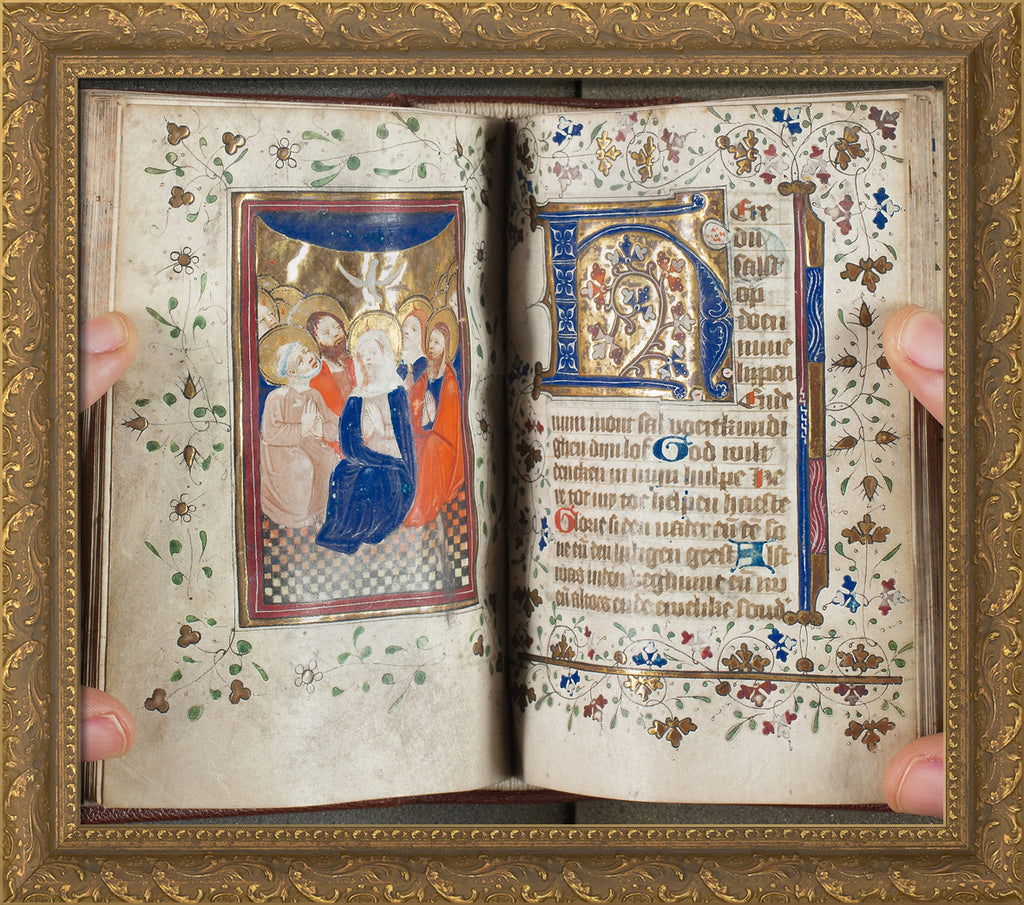 Here
du
salst
op
doen
mine
lippen
Ende
mijn mont sal voertkundi
ghen dijn lof God wilt
dencken in mijn hulpe He
re tot my toe helpen haeste
Glorie si den vader en̄ de so
ne en̄ den heligen geest Alst
was inden beghinne en̄ nu
en̄ altoes ende ewelike sond